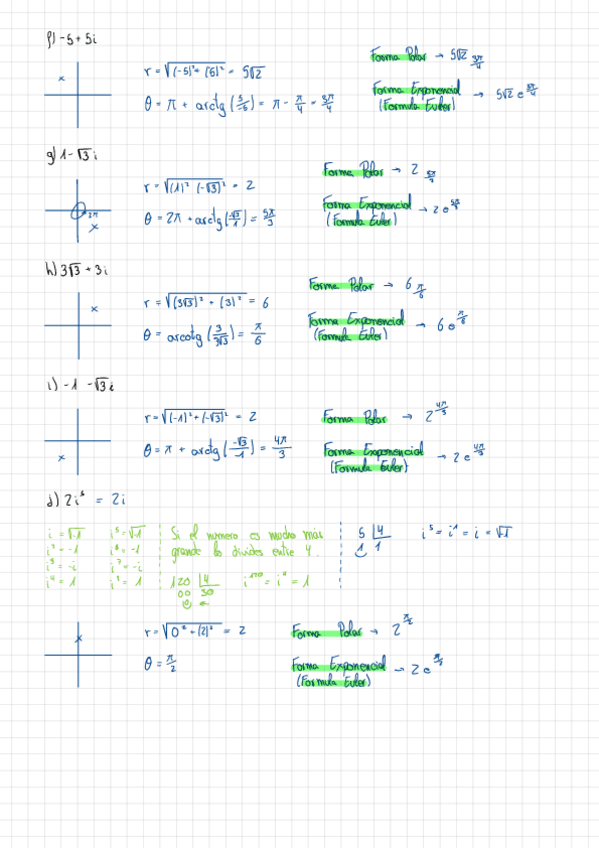 f) -5 + 5i
r = √(-5)² + (5)² = 5√2
θ = π + arctg (5/-5) = π - π/4 = 3π/4
Forma Polar → 5√2 3π/4
Forma Exponencial → 5√2 e 3π/4
(Formula Euler)
g) 1 - √3 i
r = √(1)² (-√3)² = 2
θ = 2π + arctg (-√3/1) = 5π/3
Forma Polar → 2
Forma Exponencial → 2 e
(Formula Euler)
h) 3√3 + 3i
r = √(3√3)² + (3)² = 6
θ = arcotg (3/3√3) = π/6
Forma Polar → 6 π/6
Forma Exponencial → 6 e π/6
(Formula Euler)
i) -1 - √3 i
r = √(-1)² + (-√3)² = 2
θ = π + arctg (-√3/-1) = 4π/3
Forma Polar → 2 4π/3
Forma Exponencial → 2 e 4π/3
(Formula Euler)
d) 2i⁵ = 2i
i = √-1 i⁵ = √-1
i² = -1 i⁶ = -1
i³ = -i i⁷ = -i
i⁴ = 1 i⁸ = 1
Si el numero es mucho mas
grande lo divides entre 4.
120 4
00 30
0
5 4
1 1
i⁵ = i¹ = i = √-1
r = √0² + (2)² = 2
θ = π/2
Forma Polar → 2 π/2
Forma Exponencial → 2 e π/2
(Formula Euler)